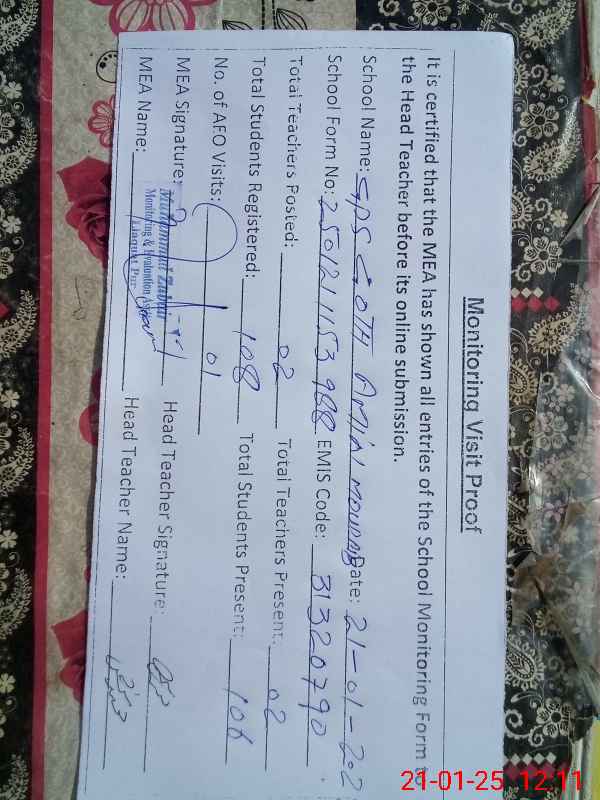 Monitoring Visit Proof
It is certified that the MEA has shown all entries of the School Monitoring Form to
the Head Teacher before its online submission.
School Name: GPS GOTH AMIN MOUNAB Date: 21-01-202
School Form No: 2501211153988 EMIS Code: 31320790
Total Teachers Posted: 02 Total Teachers Present: 02
Total Students Registered: 108 Total Students Present: 106
No. of AEO Visits: 01
MEA Signature: Head Teacher Signature:
MEA Name: Head Teacher Name:
Muhammad
Monitoring & Evaluation
Liaquat Pur
21-01-25 12:11